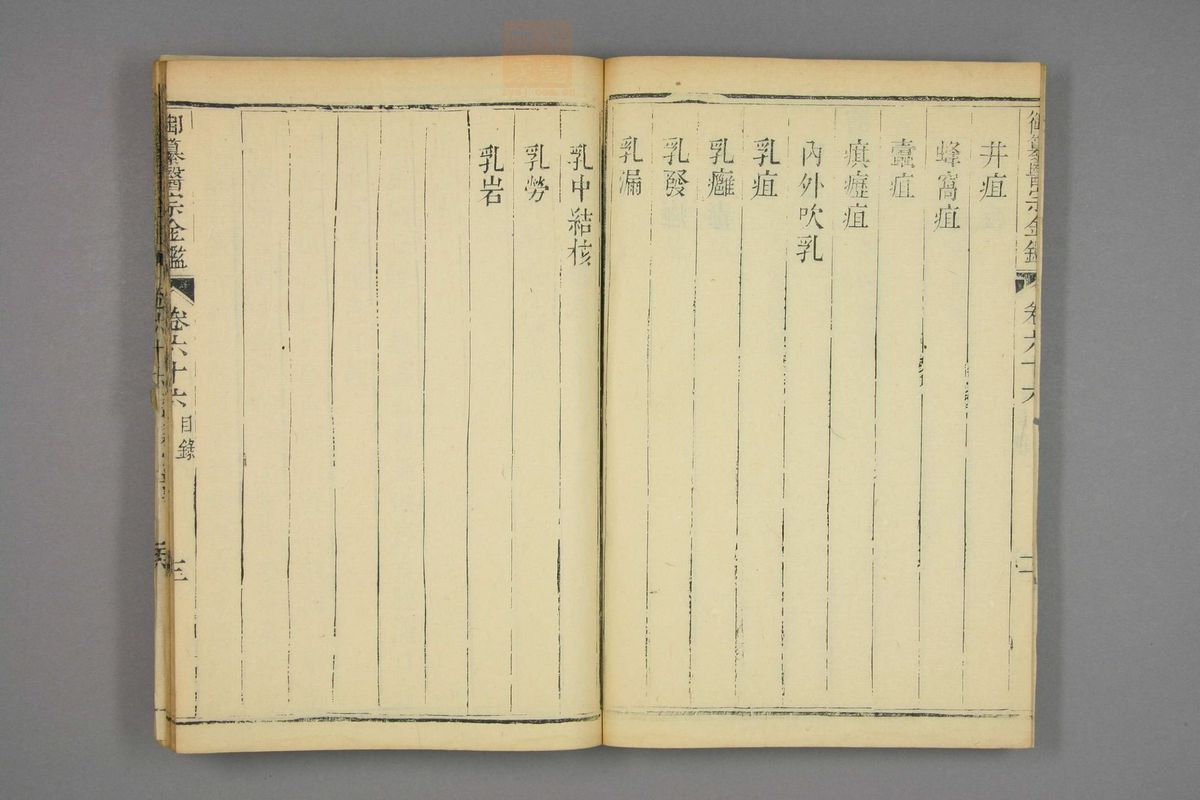 御纂醫宗金鑑
卷六十六
二
井疽
蜂窩疽
蠹疽
瘨癧疽
內外吹乳
乳疽
乳癰
乳發
乳漏
乳中結核
乳勞
乳岩
御纂醫宗金鑑
卷六十六 目錄
三